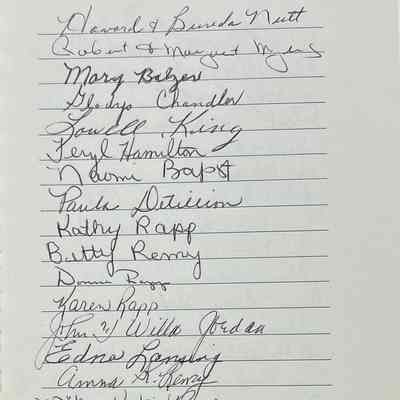 Howard & Bureda Nutt
Robert & Margaret Myers
Mary Balzer
Gladys Chandler
Lowell King
Feryl Hamilton
Naomi Bapst
Paula Detillion
Kathy Rapp
Betty Remy
Donna Rapp
Karen Rapp
John & Willa Jordan
Edna Lansing
Anna R. Remy